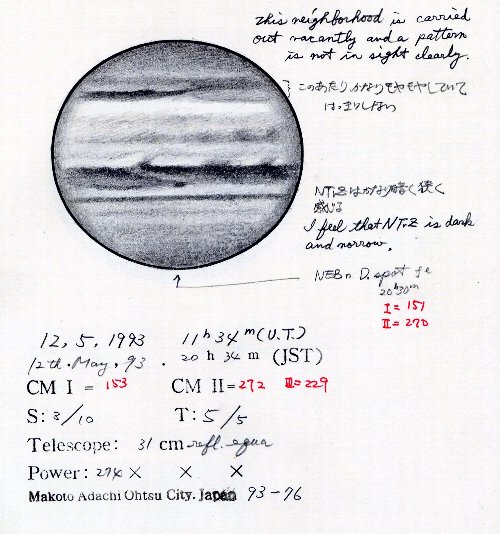 This neighborhood is carried
out vacantly and a pattern
is not in sight clearly.
このあたりかなりモヤモヤしていて
はっきりしない
NTrZはかなり暗く狭く
感じる
I feel that NTrZ is dark
and norrow.
NEBn D. spot
20h30m
I = 151
II = 270
12, 5, 1993 11h 34m (U.T.)
12th. May, 93. 20 h 34 m (JST)
CM I = 153 CM II = 272 III = 229
S: 3/10 T: 5/5
Telescope: 31 cm refl. equa
Power: 274 × × ×
Makoto Adachi Ohtsu City. Japan 93-76